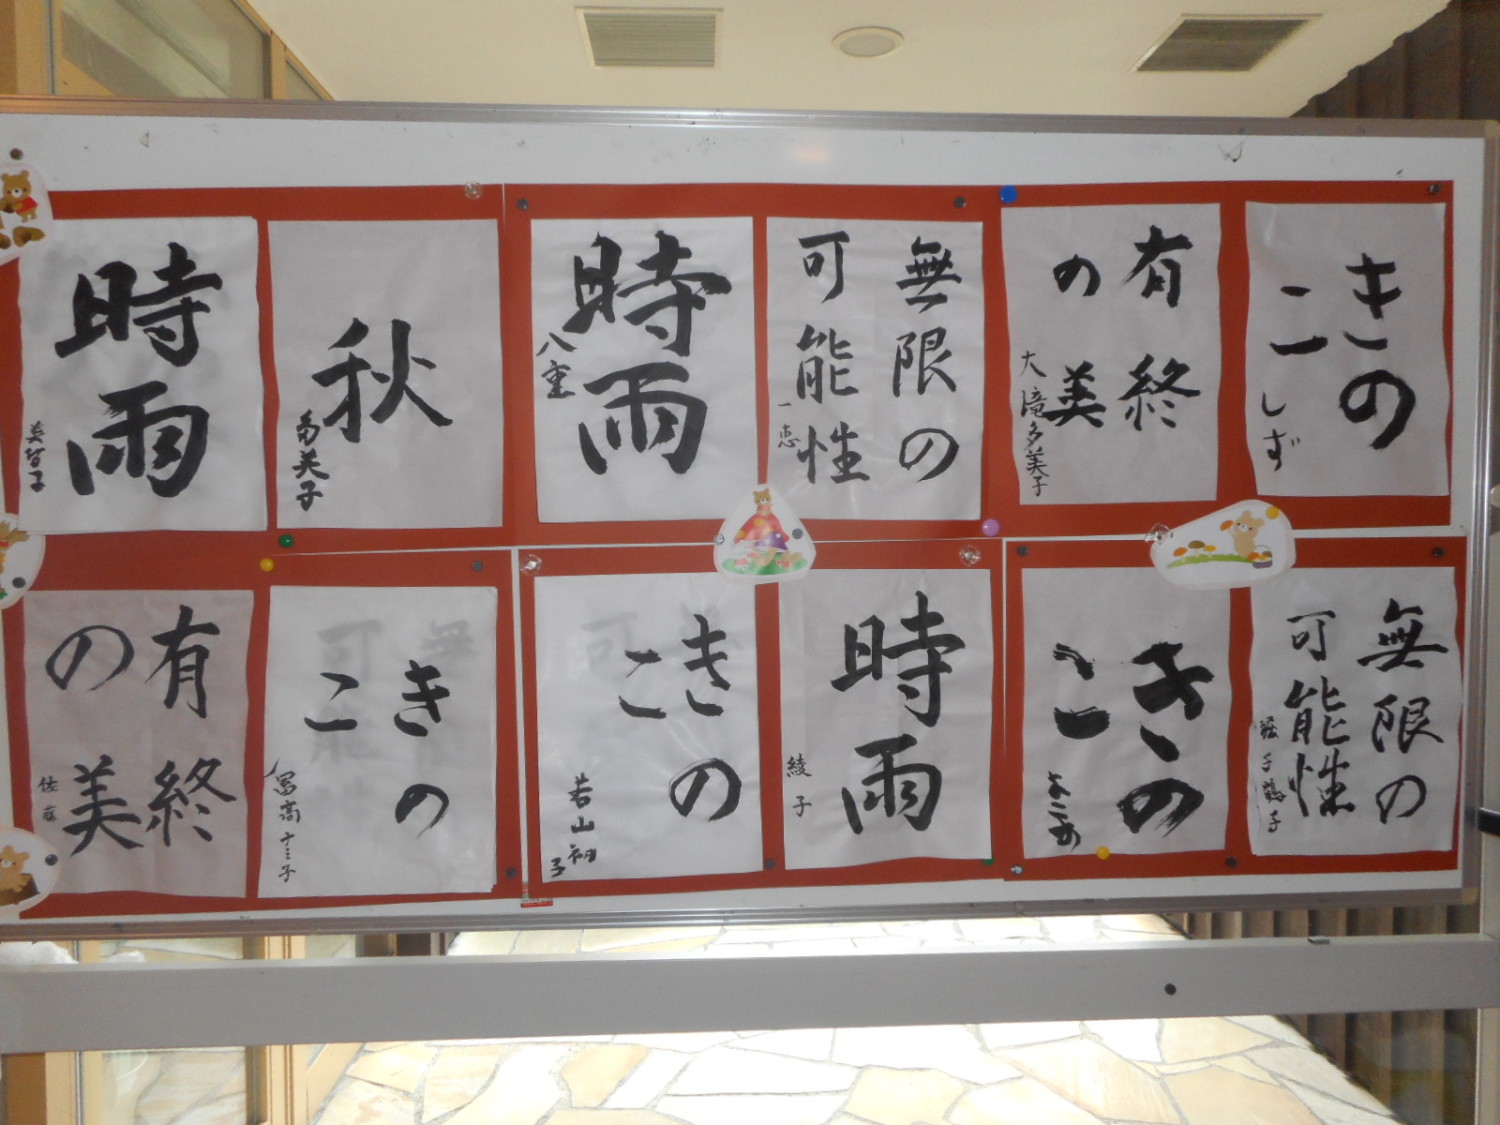 時雨
美智子
秋
多美子
時雨
八重
無限の
可能性
一恵
有終
の美
大滝多美子
きの
こ
しず
有終
の美
佐蔵
きの
こ
冨高ナミ子
きの
こ
若山初子
時雨
綾子
きの
こ
無限の
可能性